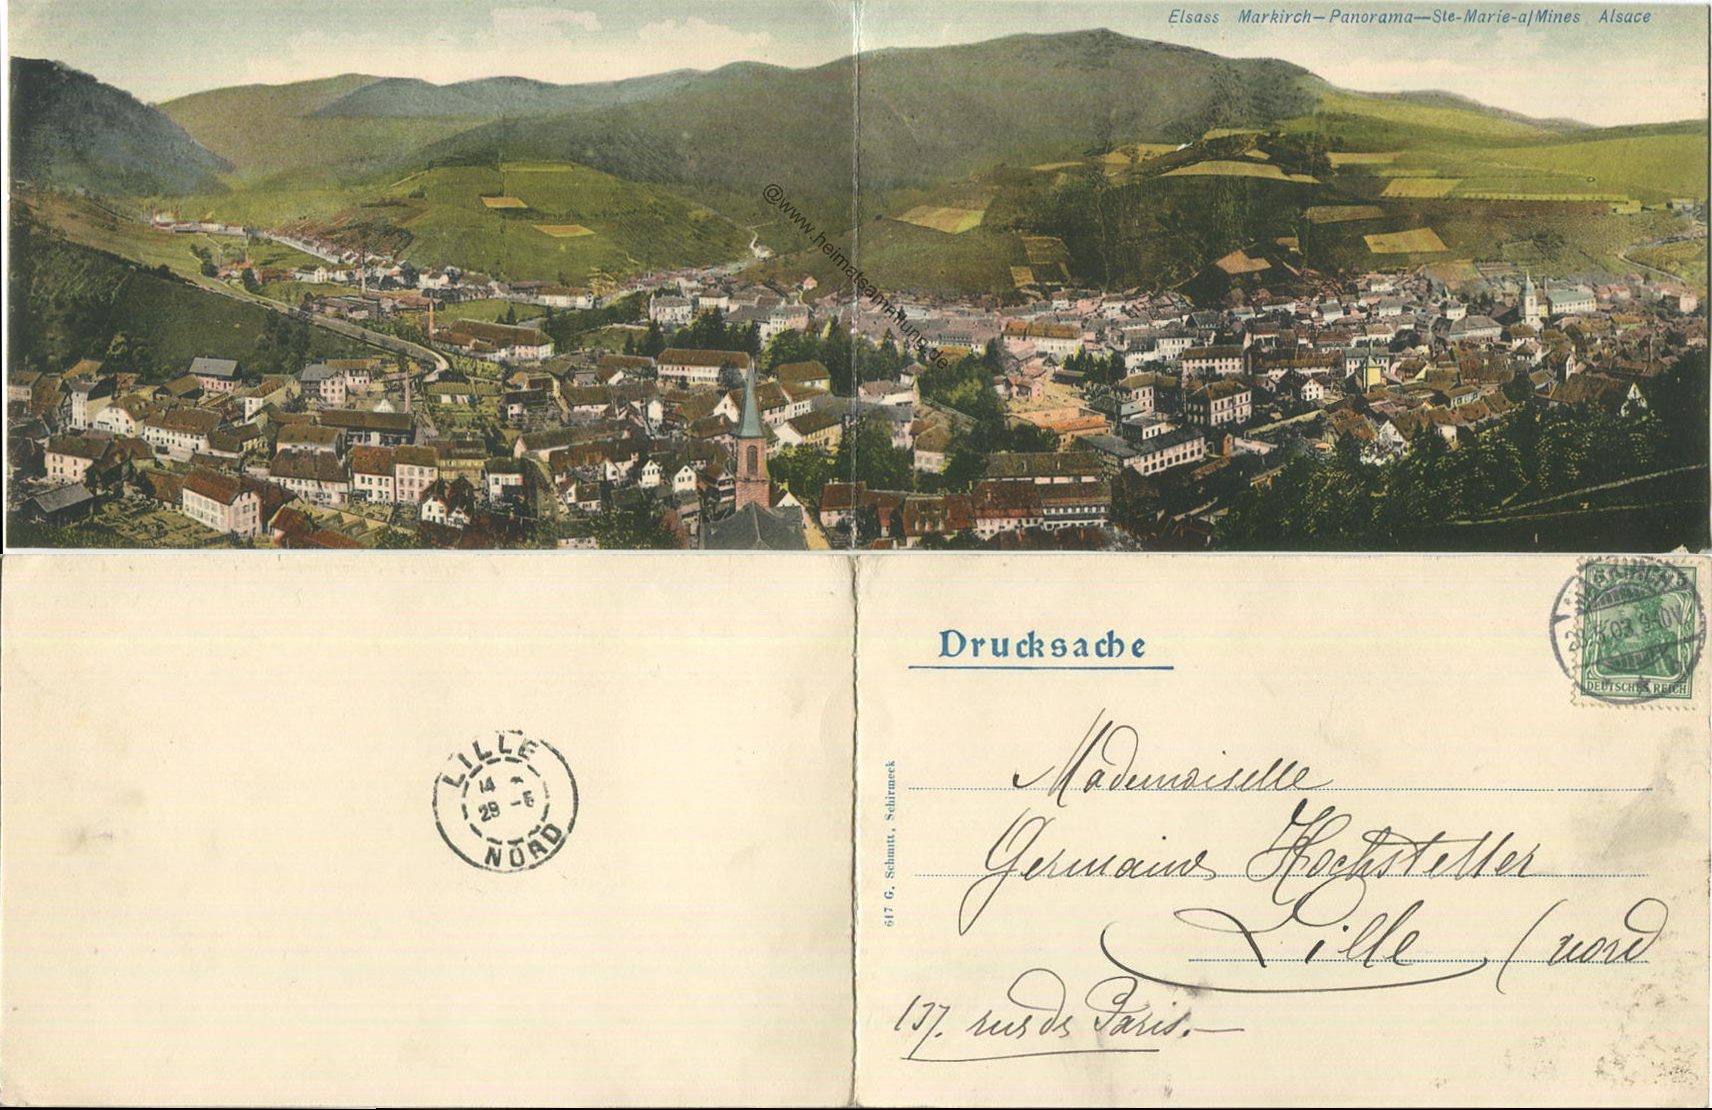 Elsass Markirch—Panorama—Ste-Marie-a/Mines Alsace
@www.heimatsammlung.de
Drucksache
DEUTSCHES REICH
LILLE
14
29 -5
NORD
617 G. Schmitt, Schirmeck
Mademoiselle
Germaine Hochstetter
Lille (nord
137. rue de Paris.—